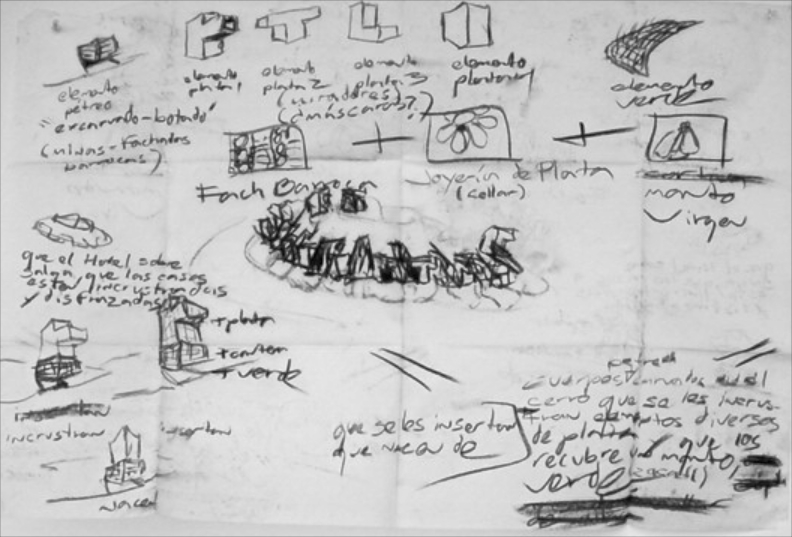 elemento
pétreo
"excavado-botado"
(minas-Fachadas
barrocas)
elemento
planta 1
elemento
planta 2
(miradores)
(¿máscaras?)
elemento
planta 3
elemento
planta 4
elemento
verde
Fach Barroca
Joyería de Plata
(collar)
manto
Virgen
que el Hotel sobre
salga, que las casas
estan incrustradas
y disfrazadas
+plata
+verde
incrustran
insertan
nacen
que se les insertan
que nacen de
petreos
cuerpos
cerro que se les incrus-
tran elementos diversos
de plata y que los
recubre un manto
verde